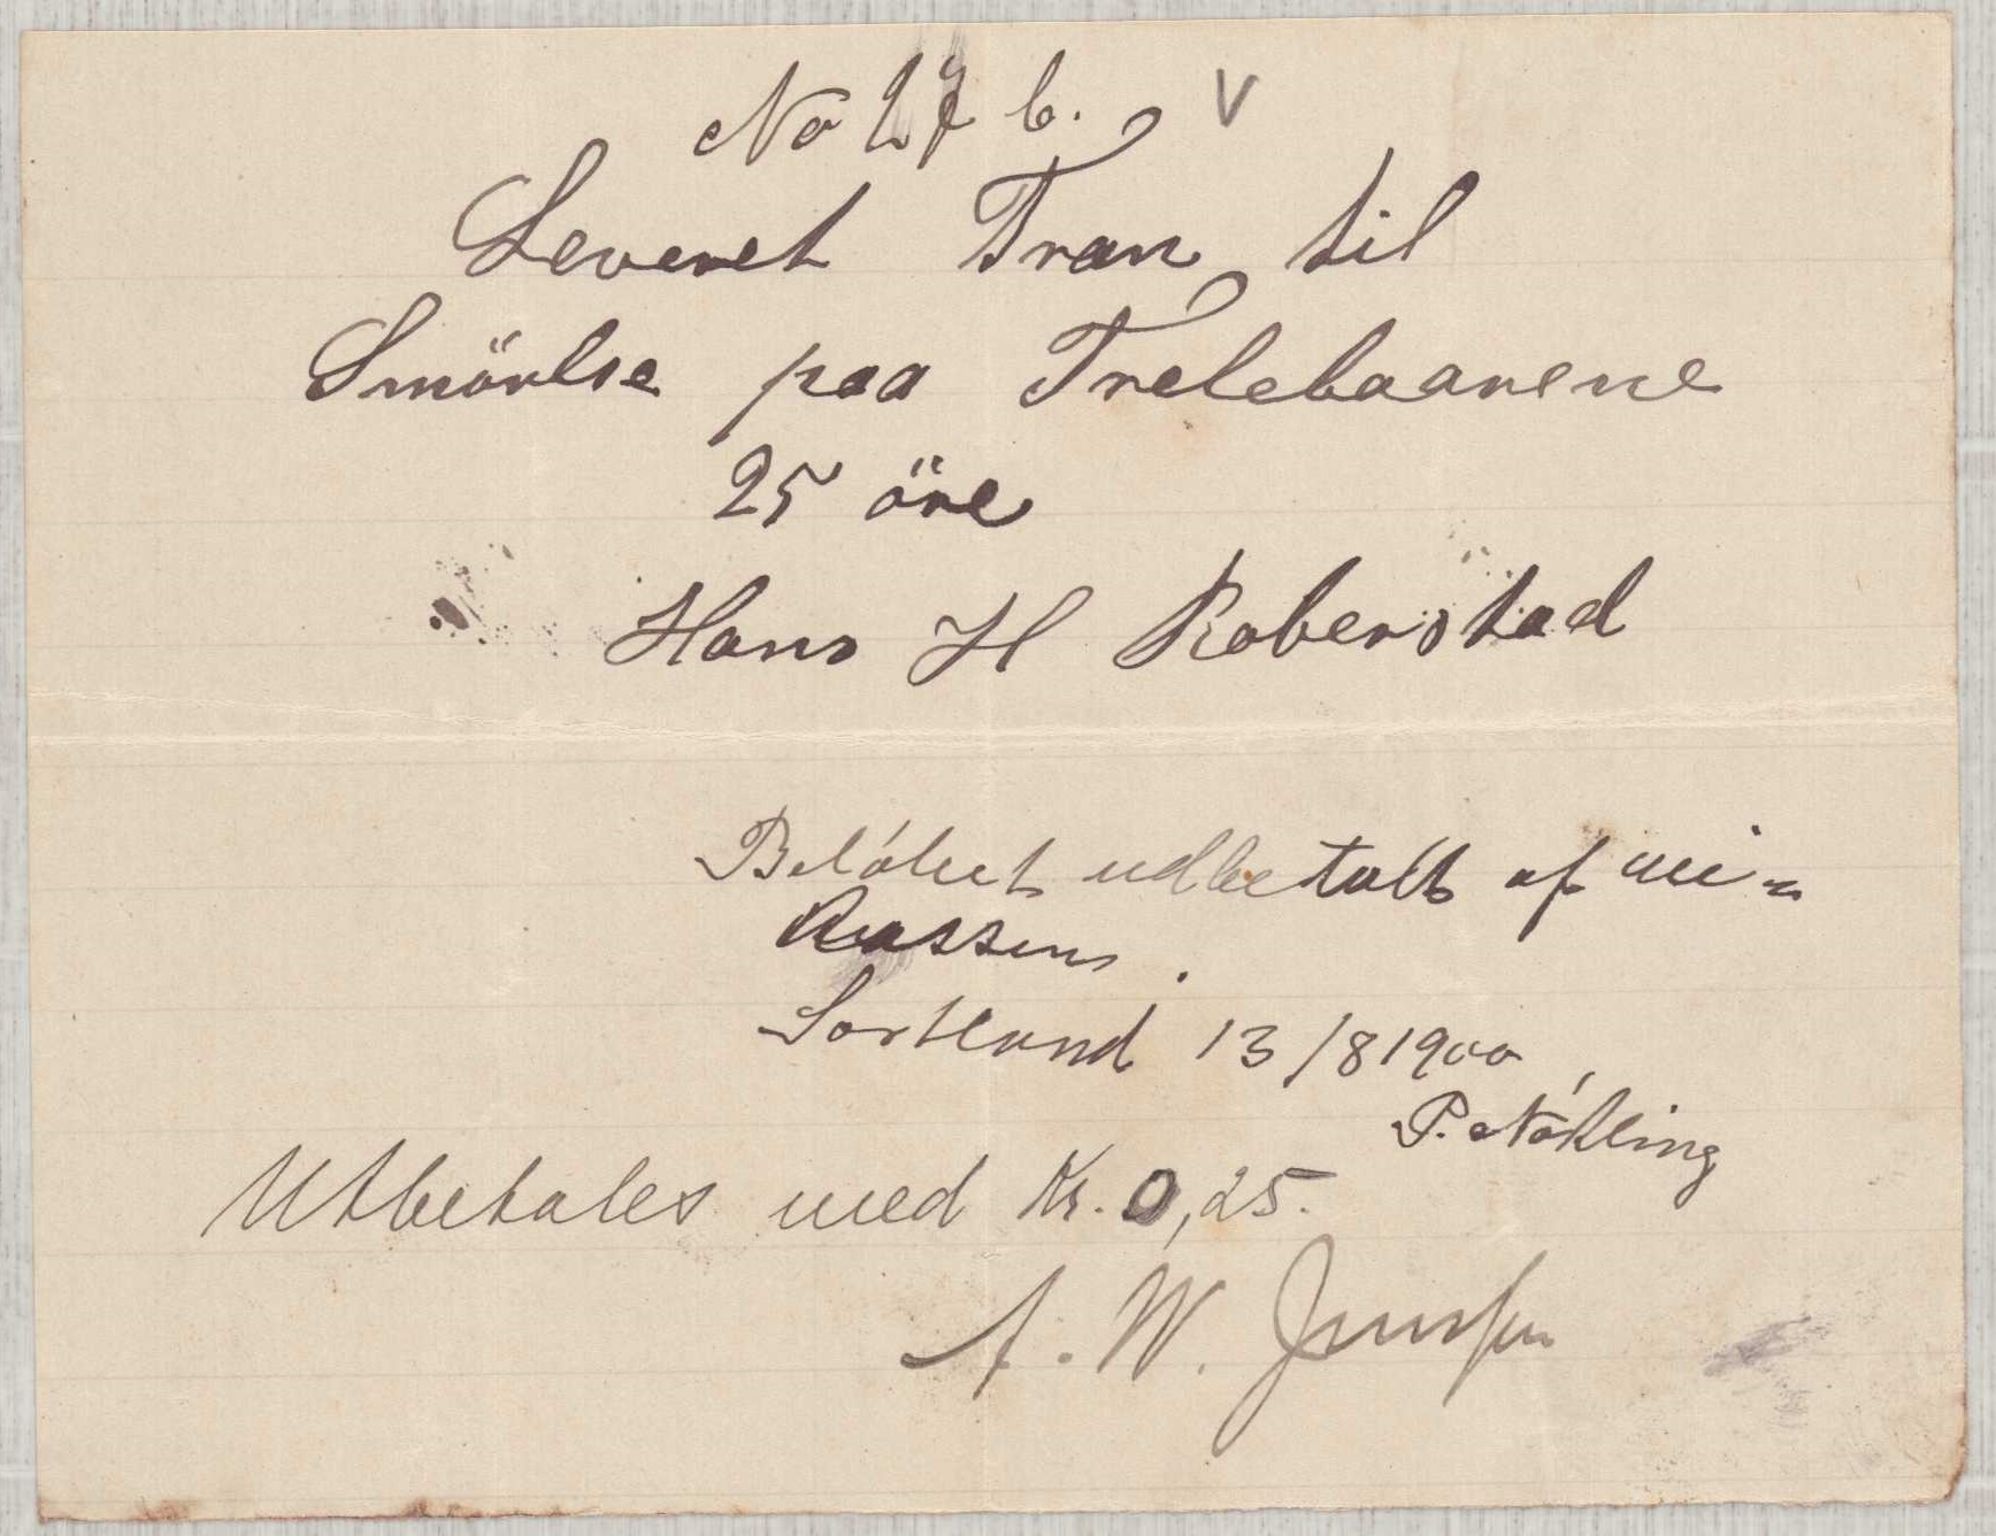 No 27 b. V
Leveret Tran til
Smörelse paa Trelebaarene
25 öre
Hans H Roberstad
Belöbet udbetalt af
Kassen.
Sortland 13/8 1900
P. Nökling
Utbetales med Kr. 0,25.
A. W. Jenssen